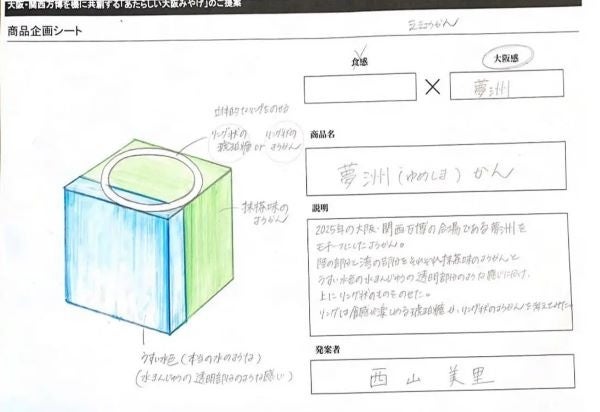 大阪・関西万博を機に共創する「あたらしい大阪みやげ」のご提案
商品企画シート
ミニようかん
食感
×
大阪感
夢洲
立体的なリングをのせる
リング状の琥珀糖 or リング状のようかん
抹茶味のようかん
うすい水色(本当の水のような)
(水まんじゅうの透明部分のような感じ)
商品名
夢洲(ゆめしま)かん
説明
2025年の大阪・関西万博の会場である夢洲を
モチーフにしたようかん。
陸の部分と海の部分をそれぞれ抹茶味のようかんと
うすい水色の水まんじゅうの透明部分のような感じに分け、
上にリング状のものをのせた。
リングは食感が楽しめる琥珀糖か、リング状のようかんを考えてみた。
発案者
西山美里